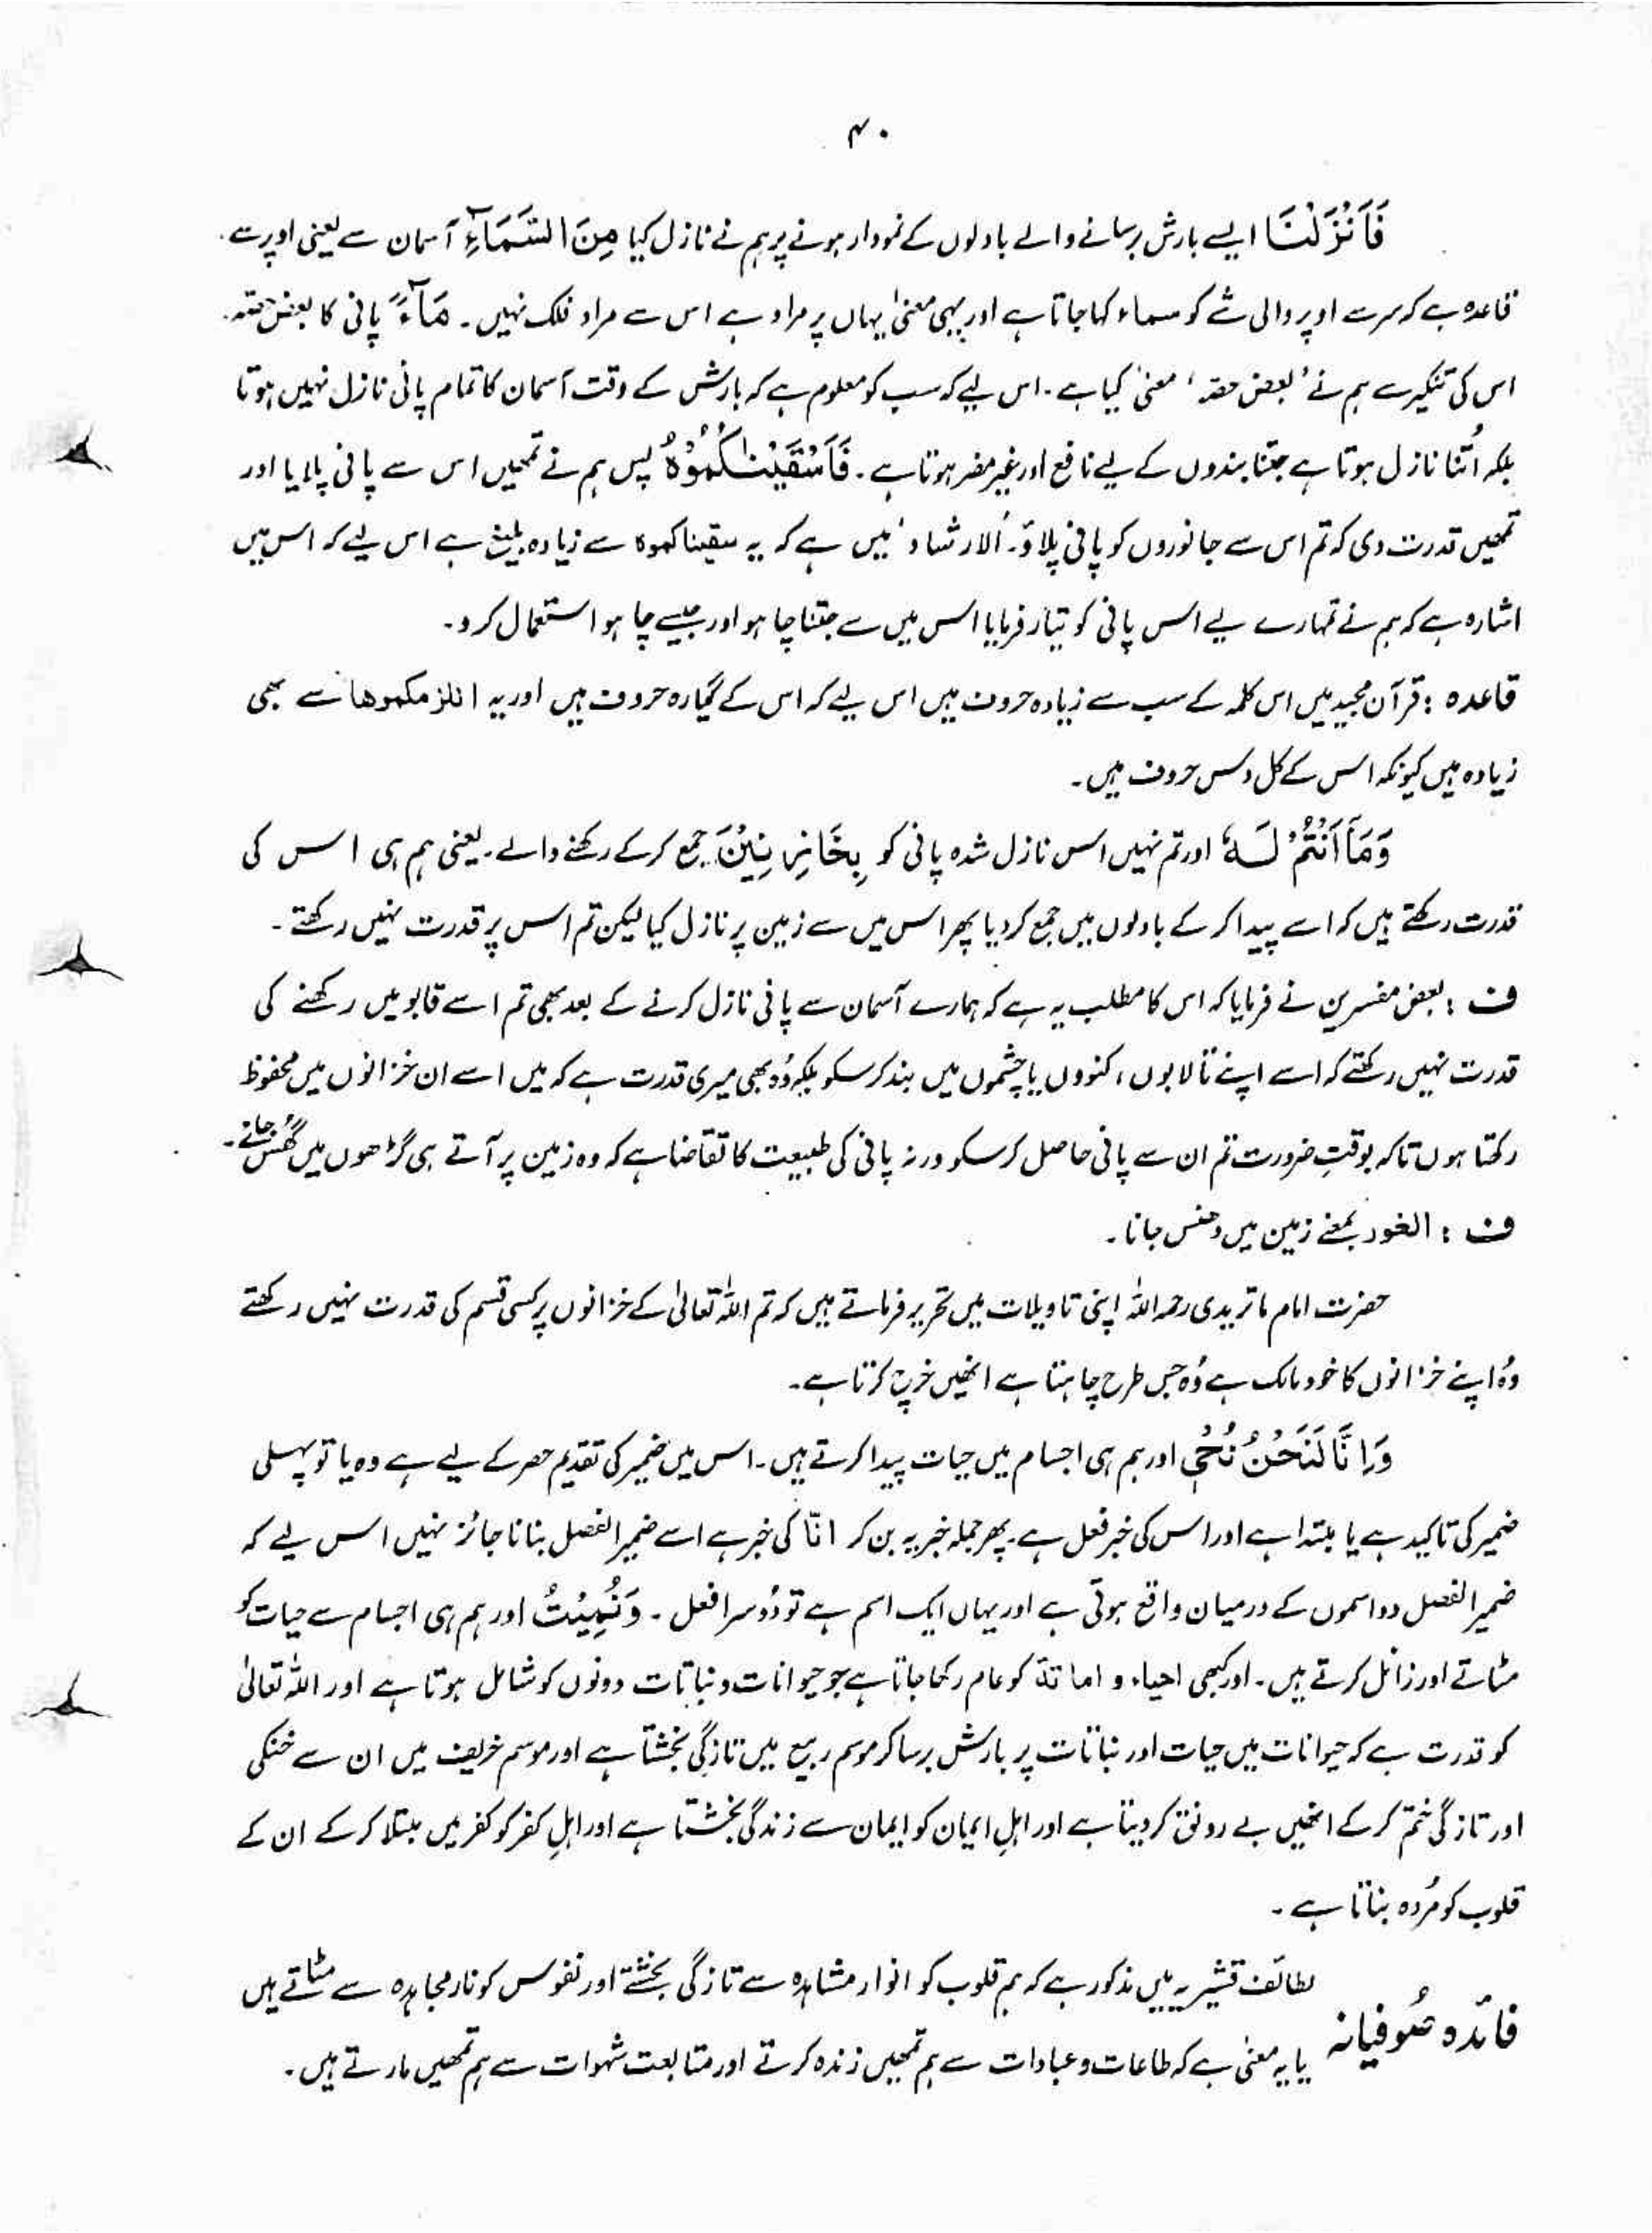 ۴۰
فَاَنْزَلْنَا ایسے بارش برسانے والے بادلوں کے نمودار ہونے پر ہم نے نازل کیا مِنَ السَّمَآءِ آسمان سے یعنی اوپر سے۔
قاعدہ ہے کہ سر سے اوپر والی شے کو سماء کہا جاتا ہے اور یہی معنیٰ یہاں پر مراد ہے اس سے مراد فلک نہیں۔ مَآءً پانی کا بعض حصّہ۔
اس کی تنکیر سے ہم نے 'بعض حصّہ' معنیٰ کیا ہے۔ اس لیے کہ سب کو معلوم ہے کہ بارش کے وقت آسمان کا تمام پانی نازل نہیں ہوتا
بلکہ اُتنا نازل ہوتا ہے جتنا بندوں کے لیے نافع اور غیر مضر ہوتا ہے۔ فَاَسْقَيْنٰكُمُوْهُ پس ہم نے تمھیں اس سے پانی پلایا اور
تمھیں قدرت دی کہ تم اس سے جانوروں کو پانی پلاؤ۔ 'الارشاد' میں ہے کہ یہ سقیناکموہ سے زیادہ بلیغ ہے اس لیے کہ اس میں
اشارہ ہے کہ ہم نے تمہارے لیے اس پانی کو تیار فرمایا اس میں سے جتنا چاہو اور جیسے چاہو استعمال کرو۔
قاعدہ : قرآن مجید میں اس کلمہ کے سب سے زیادہ حروف ہیں اس لیے کہ اس کے گیارہ حروف ہیں اور یہ انلزمکموھا سے بھی
زیادہ ہیں کیونکہ اس کے کل دس حروف ہیں۔
وَمَآ اَنْتُمْ لَهٗ اور تم نہیں اس نازل شدہ پانی کو بِخَازِنِيْنَ جمع کر کے رکھنے والے۔ یعنی ہم ہی اس کی
قدرت رکھتے ہیں کہ اسے پیدا کر کے بادلوں میں جمع کر دیا پھر اس میں سے زمین پر نازل کیا لیکن تم اس پر قدرت نہیں رکھتے۔
ف : بعض مفسرین نے فرمایا کہ اس کا مطلب یہ ہے کہ ہمارے آسمان سے پانی نازل کرنے کے بعد بھی تم اسے قابو میں رکھنے کی
قدرت نہیں رکھتے کہ اسے اپنے تالابوں، کنووں یا چشموں میں بند کر سکو بلکہ وُہ بھی میری قدرت ہے کہ میں اسے ان خزانوں میں محفوظ
رکھتا ہوں تاکہ بوقتِ ضرورت تم ان سے پانی حاصل کر سکو ورنہ پانی کی طبیعت کا تقاضا ہے کہ وہ زمین پر آتے ہی گڑھوں میں گھُس جائے۔
ف : الغور بمعنے زمین میں دھنس جانا۔
حضرت امام ماتریدی رحمہ اللہ اپنی تاویلات میں تحریر فرماتے ہیں کہ تم اللہ تعالیٰ کے خزانوں پر کسی قسم کی قدرت نہیں رکھتے
وُہ اپنے خزانوں کا خود مالک ہے وُہ جس طرح چاہتا ہے انھیں خرچ کرتا ہے۔
وَاِنَّا لَنَحْنُ نُحْیٖ اور ہم ہی اجسام میں حیات پیدا کرتے ہیں۔ اس میں ضمیر کی تقدیم حصر کے لیے ہے وہ یا تو پہلی
ضمیر کی تاکید ہے یا مبتدا ہے اور اس کی خبر فعل ہے۔ پھر جملہ خبریہ بن کر انّا کی خبر ہے اسے ضمیر الفصل بنانا جائز نہیں اس لیے کہ
ضمیر الفصل دو اسموں کے درمیان واقع ہوتی ہے اور یہاں ایک اسم ہے تو دُوسرا فعل۔ وَنُمِيْتُ اور ہم ہی اجسام سے حیات کو
مٹاتے اور زائل کرتے ہیں۔ اور کبھی احیاء و اماتة کو عام رکھا جاتا ہے جو حیوانات و نباتات دونوں کو شامل ہوتا ہے اور اللہ تعالیٰ
کو قدرت ہے کہ حیوانات میں حیات اور نباتات پر بارش برسا کر موسم ربیع میں تازگی بخشتا ہے اور موسم خریف میں ان سے خنکی
اور تازگی ختم کر کے انھیں بے رونق کر دیتا ہے اور اہلِ ایمان کو ایمان سے زندگی بخشتا ہے اور اہلِ کفر کو کفر میں مبتلا کر کے ان کے
قلوب کو مُردہ بناتا ہے۔
فائدہ صُوفیانہ
لطائف قشیریہ میں مذکور ہے کہ ہم قلوب کو انوار مشاہدہ سے تازگی بخشتے اور نفوس کو نار مجاہدہ سے مٹاتے ہیں
یا یہ معنیٰ ہے کہ طاعات و عبادات سے ہم تمھیں زندہ کرتے اور متابعت شہوات سے ہم تمھیں مارتے ہیں۔